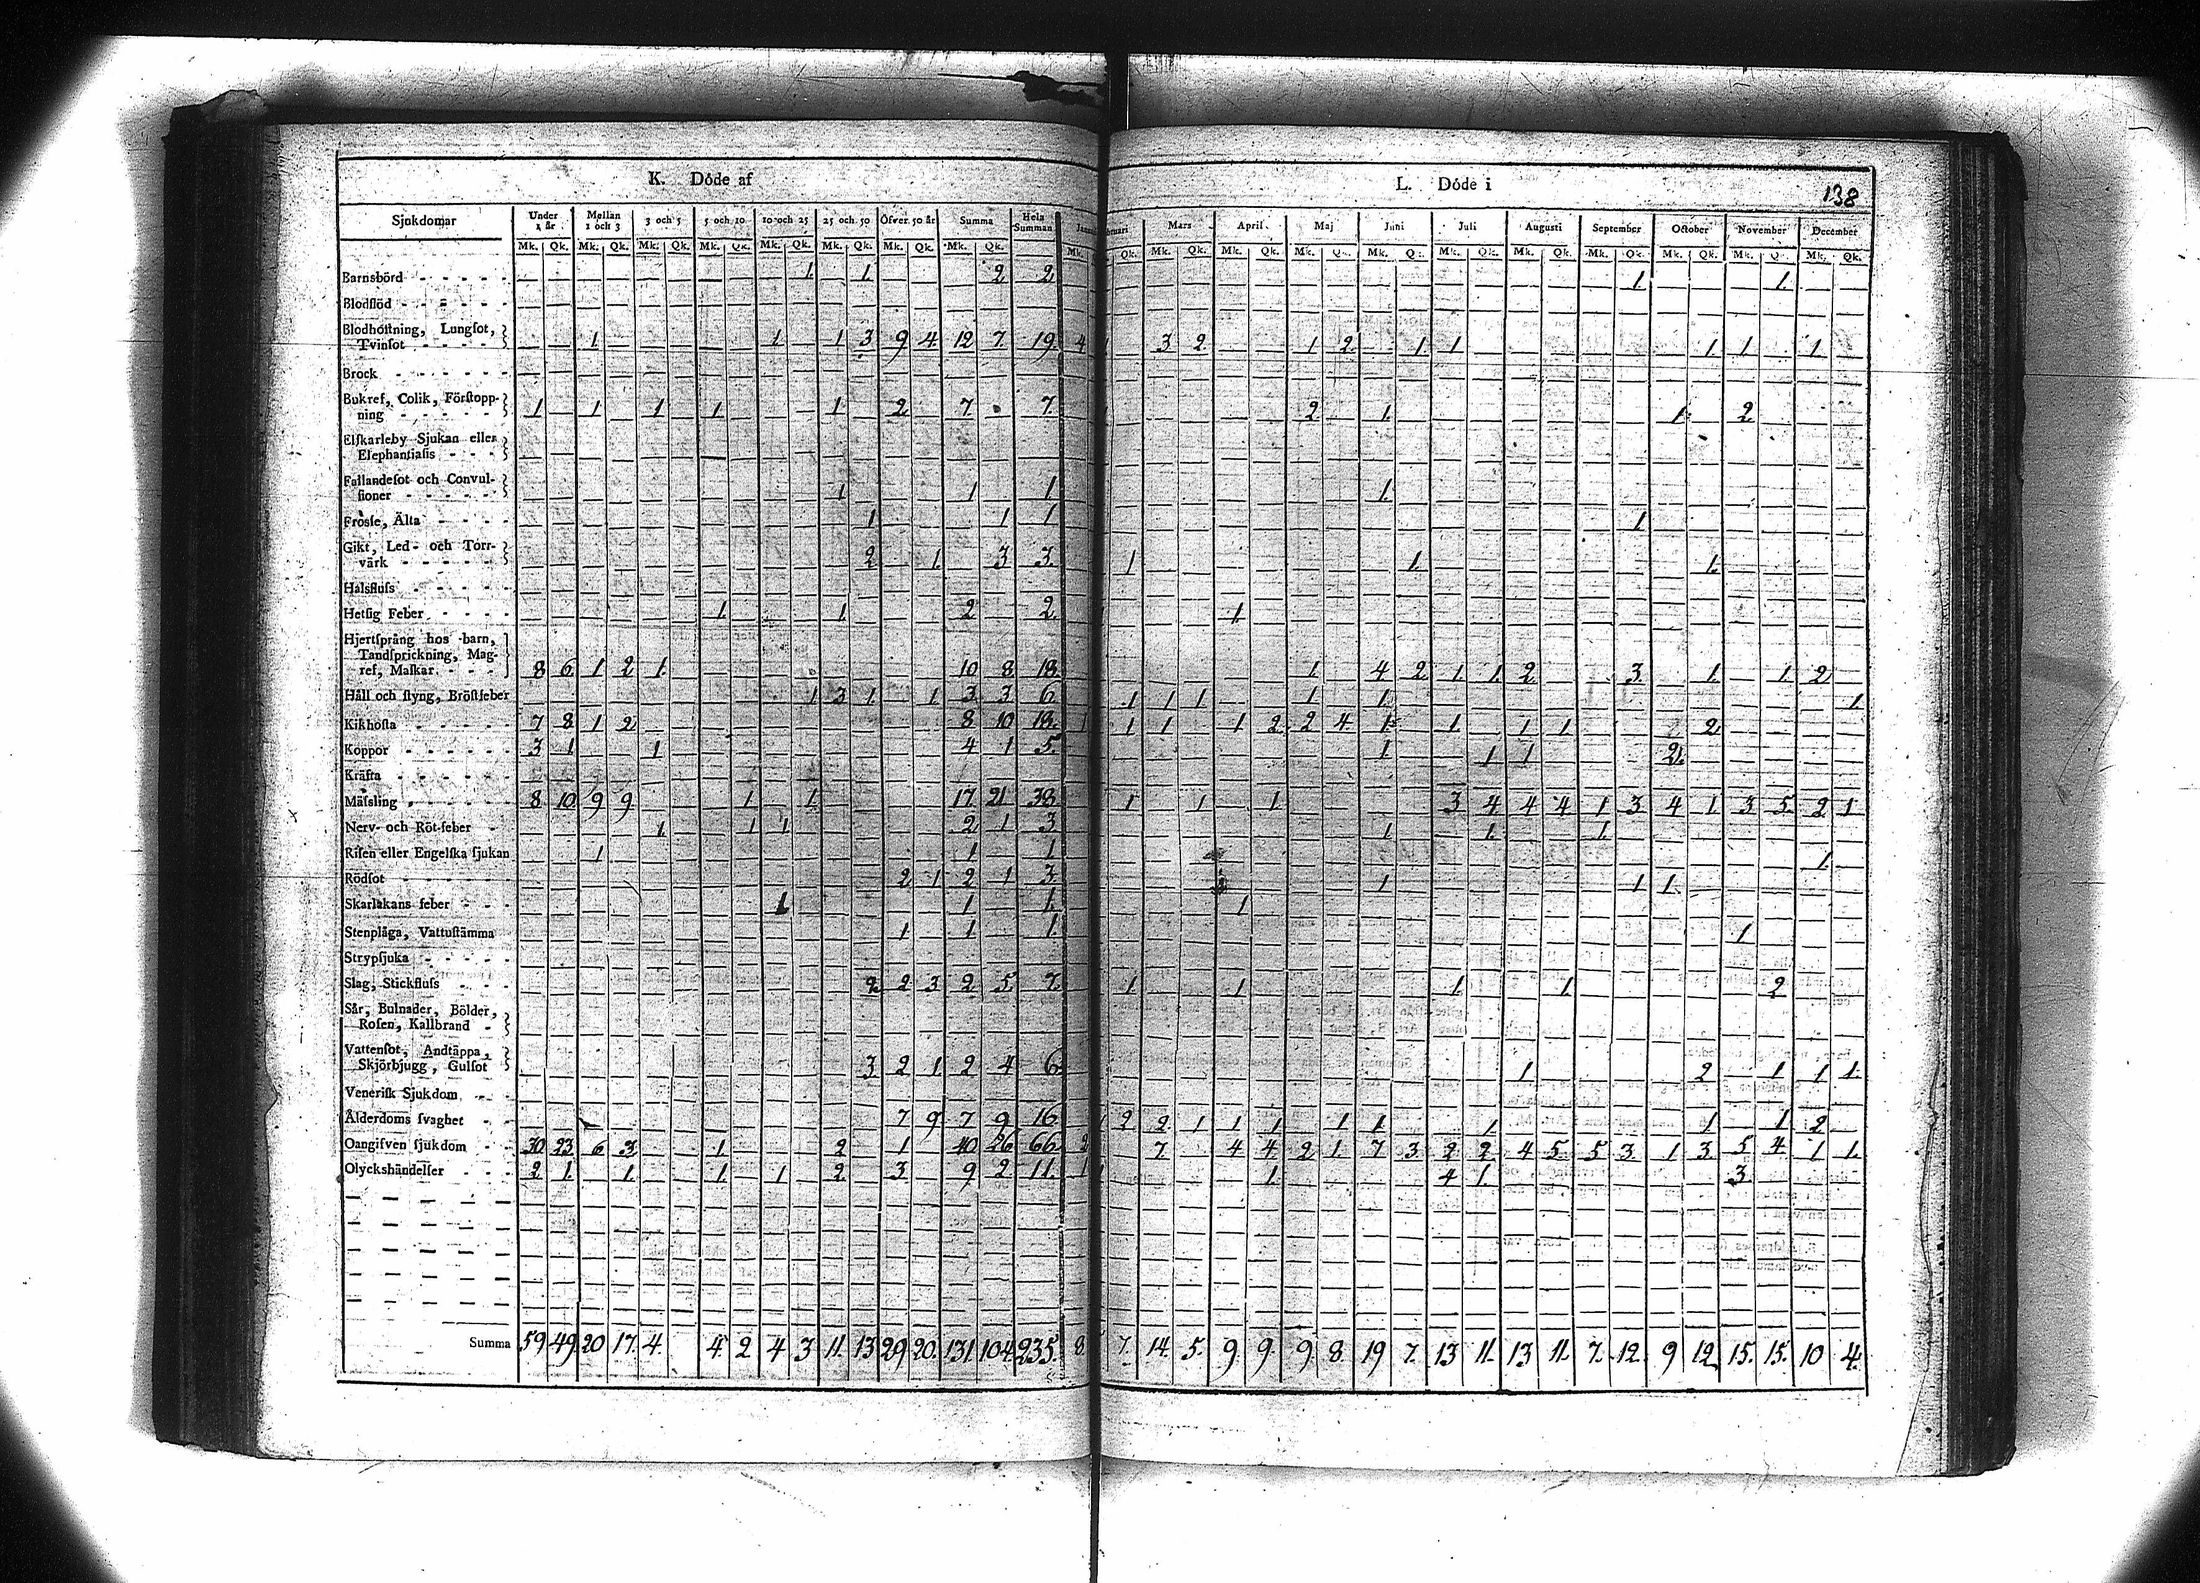 K. Döde af
L. Döde i
138
Sjukdomar Under 1 år Mellan 1 och 3 3 och 5 5 och 10 10 och 25 25 och 50 Öfver 50 år Summa Hela Summan Mars April Maj Juni Juli Augusti September October November December
Mk. Qk. Mk. Qk. Mk. Qk. Mk. Qk. Mk. Qk. Mk. Qk. Mk. Qk. Mk. Qk. Mk. Qk. Mk. Qk. Mk. Qk. Mk. Qk. Mk. Qk. Mk. Qk. Mk. Qk. Mk. Qk. Mk. Qk. Mk. Qk. Mk. Qk.
Barnsbörd 1. 1. 2 2. 1. 1.
Blodflöd
Blodhostning, Lungsot,
Tvinsot 1 1 1 3 9 4 12 7. 19 4 3 2. 1 2 1. 1 1. 1 1.
Brock
Bukref, Colik, Förstopp-
ning 1 1 1 1 1 2 7. 7. 2 1. 1. 2
Elskarleby Sjukan eller
Elephantiasis
Fallandesot och Convul-
sioner 1 1 1 1.
Frosse, Älta 1. 1 1 1.
Gikt, Led- och Torr-
värk 2 1. 3 3. 1 1. 1.
Halsfluss
Hetsig Feber 1. 1. 2 2. 1.
Hjertsprång hos barn,
Tandsprickning, Mag-
ref, Maskar 8 6 1 2 1. 10 8 18. 1. 4 2 1. 1. 2 3. 1. 1 2
Håll och styng, Bröstfeber 1 3 1. 1 3 3 6 1 1 1 1 1. 1.
Kikhosta 7 8 1 2 8 10 18. 1 1 1 1 2. 2 4. 1. 1. 1 1 2.
Koppor 3 1. 1 4 1 5. 1 1 1 2.
Kräfta
Mässling 8 10 9 9 1 1. 17. 21 38 1 1 1. 3 4 4 4 1 3. 4 1. 3 5. 2 1
Nerv- och Röt-feber 1. 1 1. 2 1 3 1 1. 1.
Risen eller Engelska sjukan 1 1 1 1.
Rödsot 2 1 2 1 3. 1 1 1.
Skarlakans feber 1 1 1. 1
Stenplåga, Vattustämma 1. 1 1. 1
Strypsjuka
Slag, Stickfluss 2 2 3 2 5. 7. 1 1 1. 1. 2
Sår, Bulnader, Bölder,
Rosen, Kallbrand
Vattensot, Andtäppa,
Skjörbjugg, Gulsot 3 2 1 2 4 6 1 2 1 1 1.
Venerisk Sjukdom
Ålderdoms svaghet 7 9 7 9 16 2 2 1 1 1 1 1 1. 1 1 2
Oangifven sjukdom 30 23 6 3 1 2 1 40 26 66 2 7. 4 4 2 1. 7 3 2 2 4 5. 5 3. 1 3 5 4 1 1.
Olyckshändelser 2 1. 1. 1 1 2. 3 9 2 11. 1 1. 4 1. 3
Summa 59 49. 20 17. 4. 4. 2 4 3 11. 13 29 20. 131 104 235. 8 7. 14. 5. 9 9. 9. 8. 19 7. 13 11. 13 11. 7. 12. 9 12. 15. 15. 10 4.